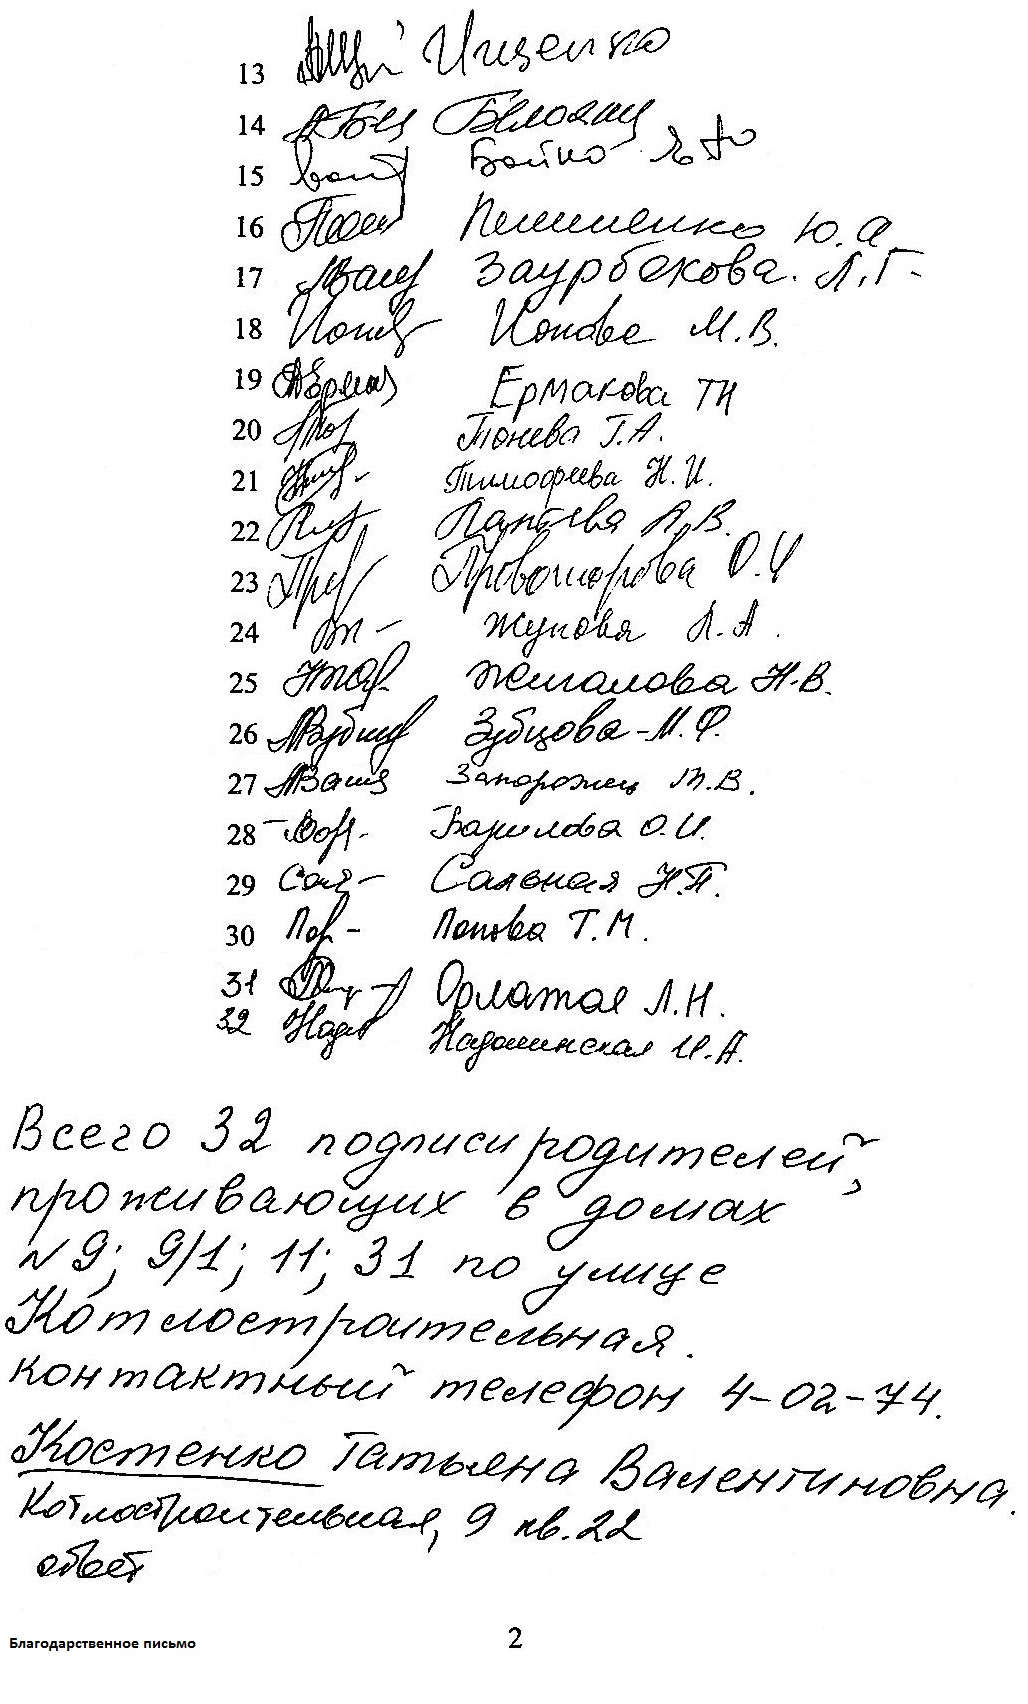 13 Ищенко
14
15 Бойко
16 Ю.А.
17 Заурбекова. Л.Г.
18 Ионова М.В.
19 Ермакова ТИ
20 Тонева Г.А.
21 Тимофеева Н.И.
22 Лаптева Л.В.
23 О.И
24 Жукова Л.А.
25 Жемгалова Н.В.
26 Зубцова-М.Ф.
27 Запорожец Т.В.
28 О.И.
29 Сальная Н.П.
30 Попова Т.М.
31 Орлатая Л.Н.
32 Надолинская И.А.
Всего 32 подписи родителей,
проживающих в домах
N9; 9/1; 11; 31 по улице
Котлостроительная.
контактный телефон 4-02-74.
Костенко Татьяна Валентиновна.
Котлостроительная, 9 кв.22
ответ
Благодарственное письмо 2